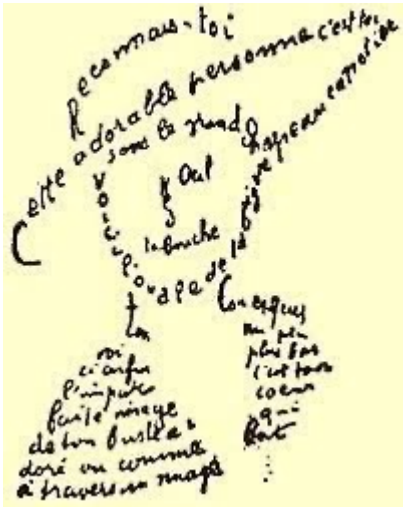 Reconnais-toi
Cette adorable personne c'est toi
sous le grand chapeau canotier
Œil
la bouche
Voici l'ovale de ta figure
ton
Cou exquis
voi
ci enfin
l'impar
faite image
de ton buste a
doré vu comme
à travers un nuage
un peu
plus bas
c'est ton
cœur
qui
bat